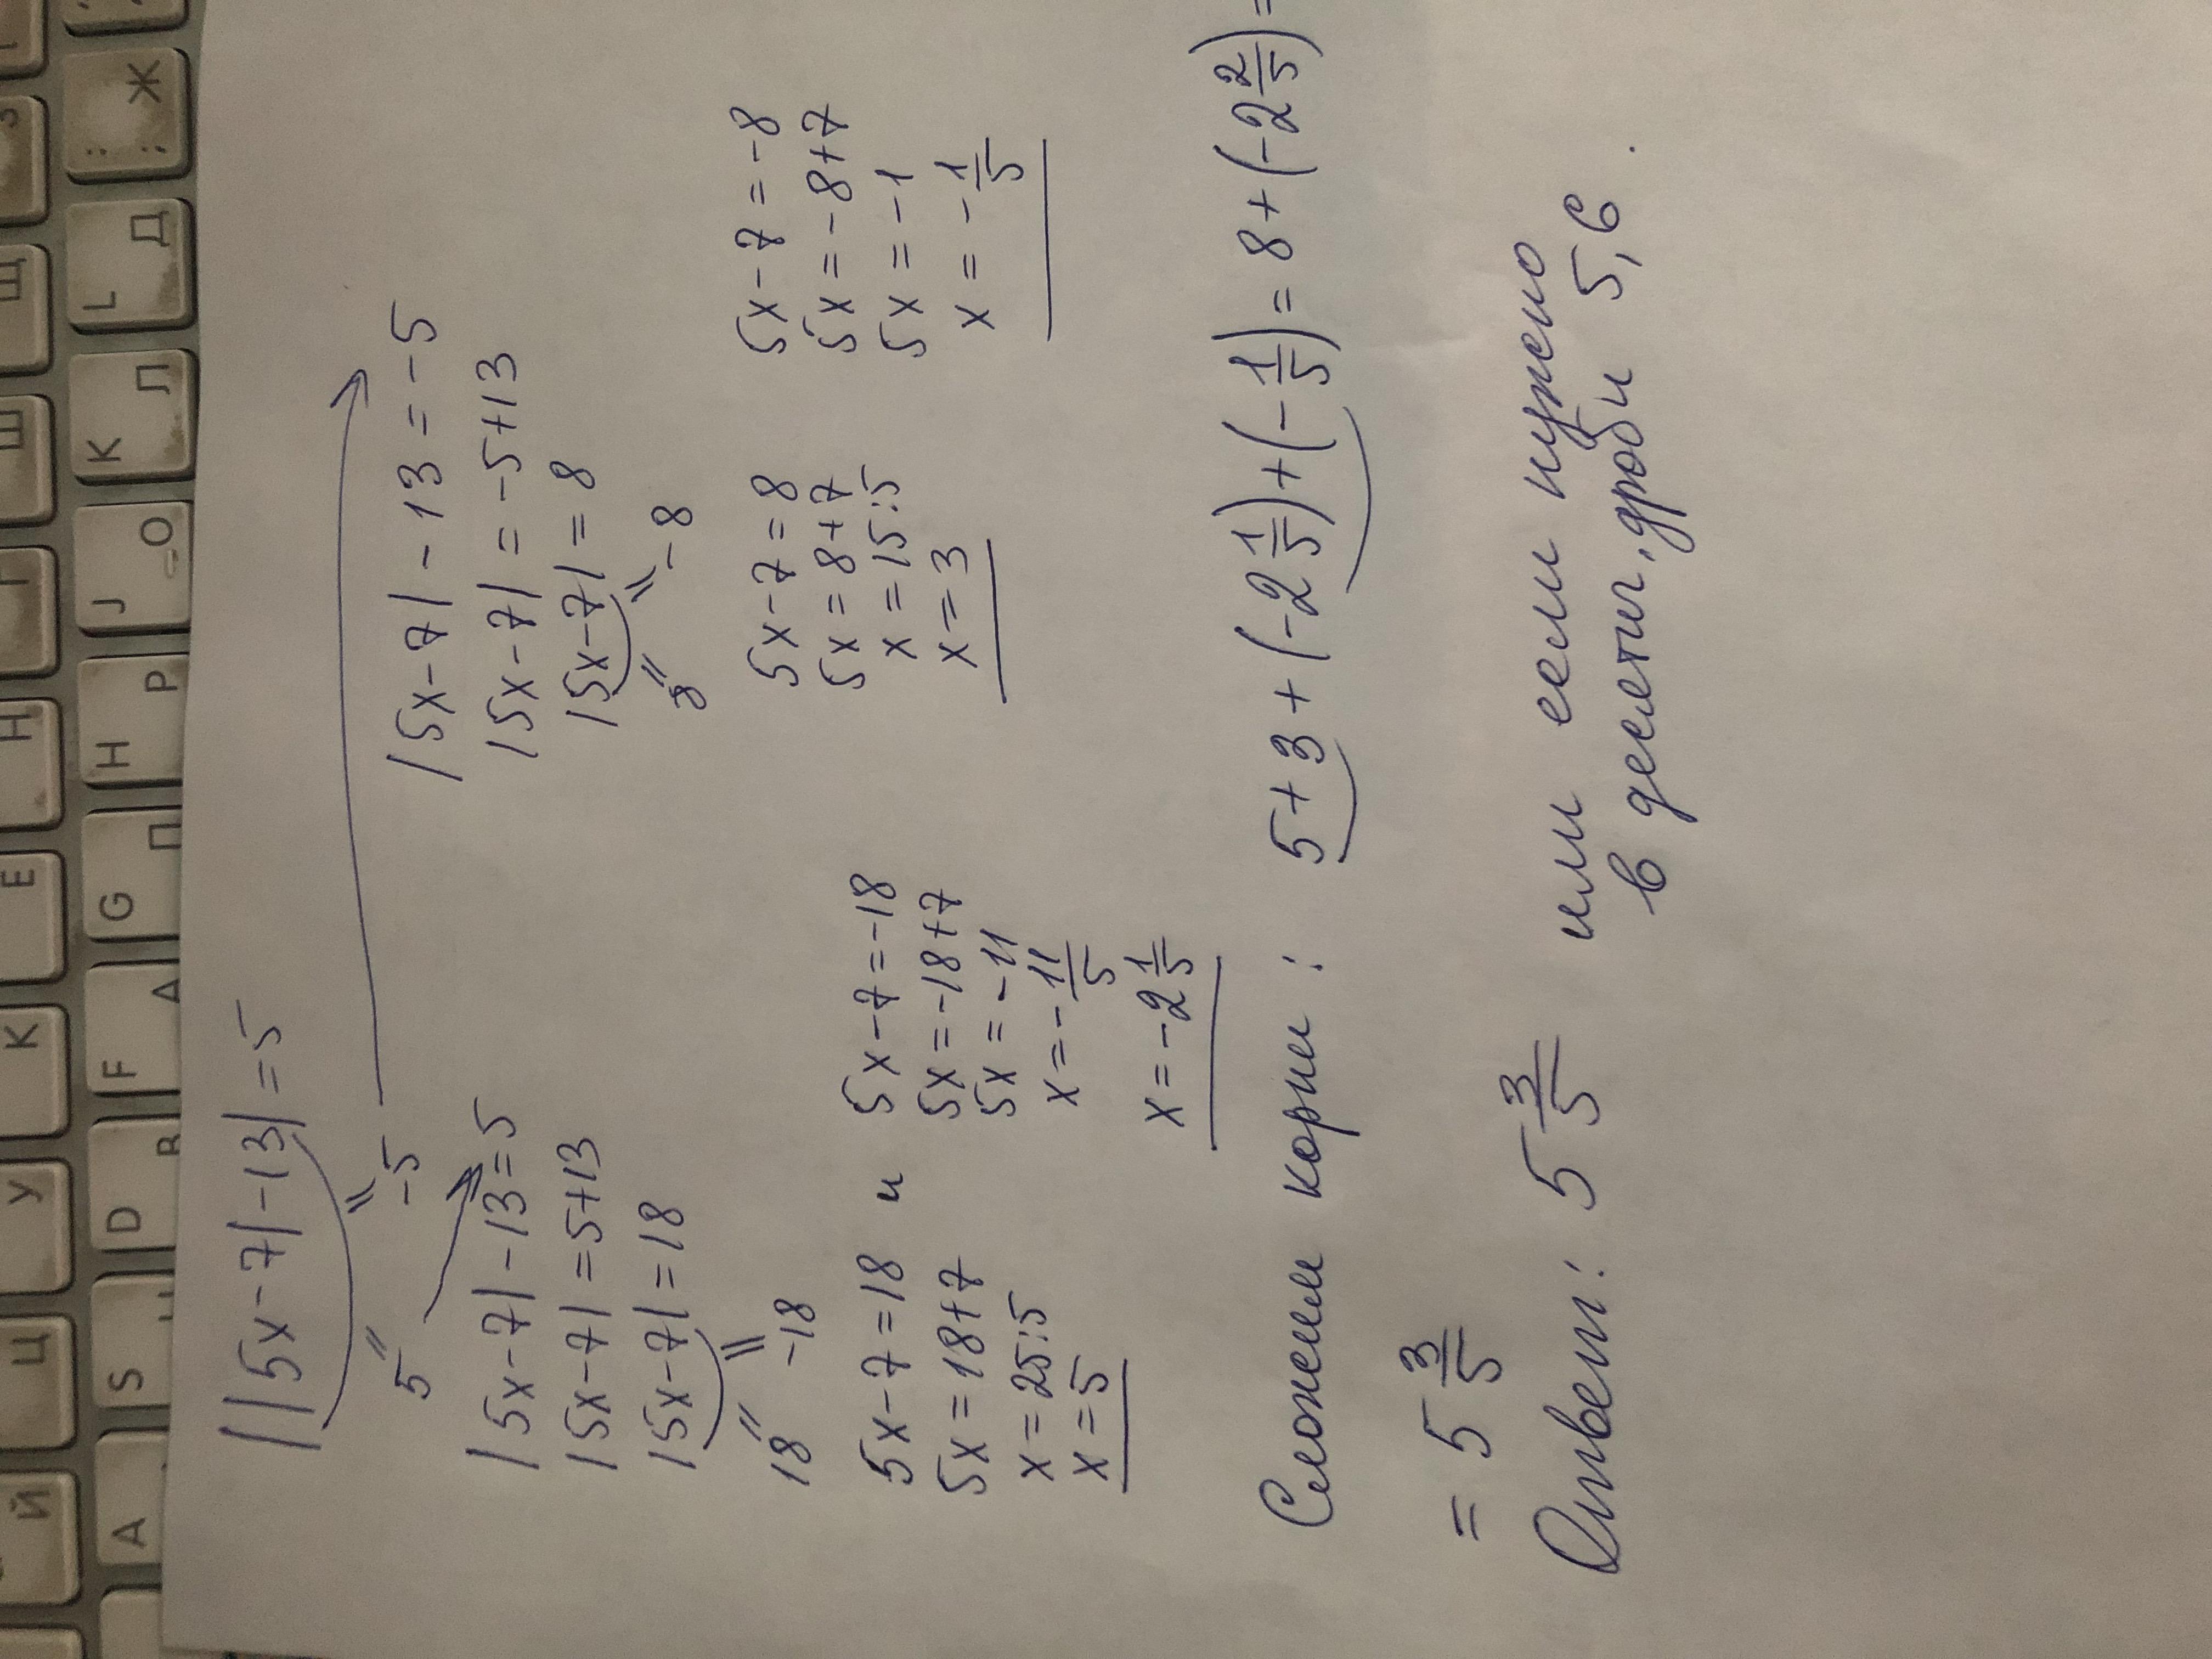 Й Ц У К Е Н Г Ш Щ З
A S D B F A G П H P J О K Л L Д : ; Ж
||5x-7|-13|=5
5 -5
|5x-7|-13=5
|5x-7|=5+13
|5x-7|=18
18 -18
|5x-7|-13=-5
|5x-7|=-5+13
|5x-7|=8
8 -8
5x-7=18 и
5x=18+7
x=25:5
x=5
5x-7=-18
5x=-18+7
5x=-11
x=-11/5
x=-2 1/5
5x-7=8
5x=8+7
x=15:5
x=3
5x-7=-8
5x=-8+7
5x=-1
x=-1/5
Сложим корни: 5+3+(-2 1/5)+(-1/5)=8+(-2 2/5)=
=5 3/5
Ответ: 5 3/5 или если нужно
в десятич. дроби 5,6.